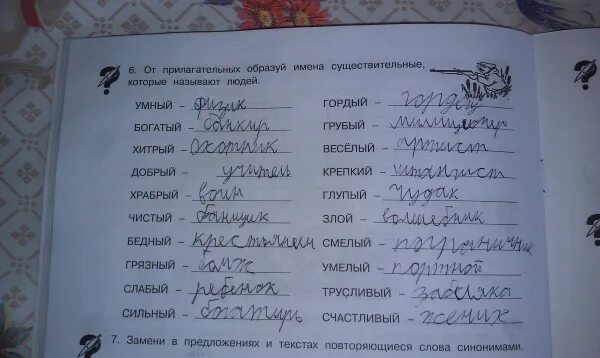 6. От прилагательных образуй имена существительные,
которые называют людей.
УМНЫЙ – физик
БОГАТЫЙ – банкир
ХИТРЫЙ – охотник
ДОБРЫЙ – учитель
ХРАБРЫЙ – воин
ЧИСТЫЙ – банщик
БЕДНЫЙ – крестьянин
ГРЯЗНЫЙ – бомж
СЛАБЫЙ – ребёнок
СИЛЬНЫЙ – богатирь
ГОРДЫЙ –
ГРУБЫЙ – милиционер
ВЕСЁЛЫЙ – артист
КРЕПКИЙ – штангист
ГЛУПЫЙ – чудак
ЗЛОЙ – волшебник
СМЕЛЫЙ – пограничник
УМЕЛЫЙ – портной
ТРУСЛИВЫЙ – забияка
СЧАСТЛИВЫЙ – жених
7. Замени в предложениях и текстах повторяющиеся слова синонимами.